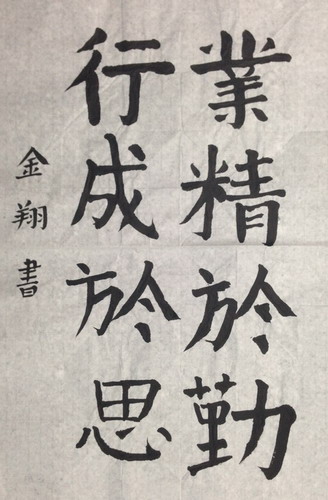 業精於勤
行成於思
金翔書